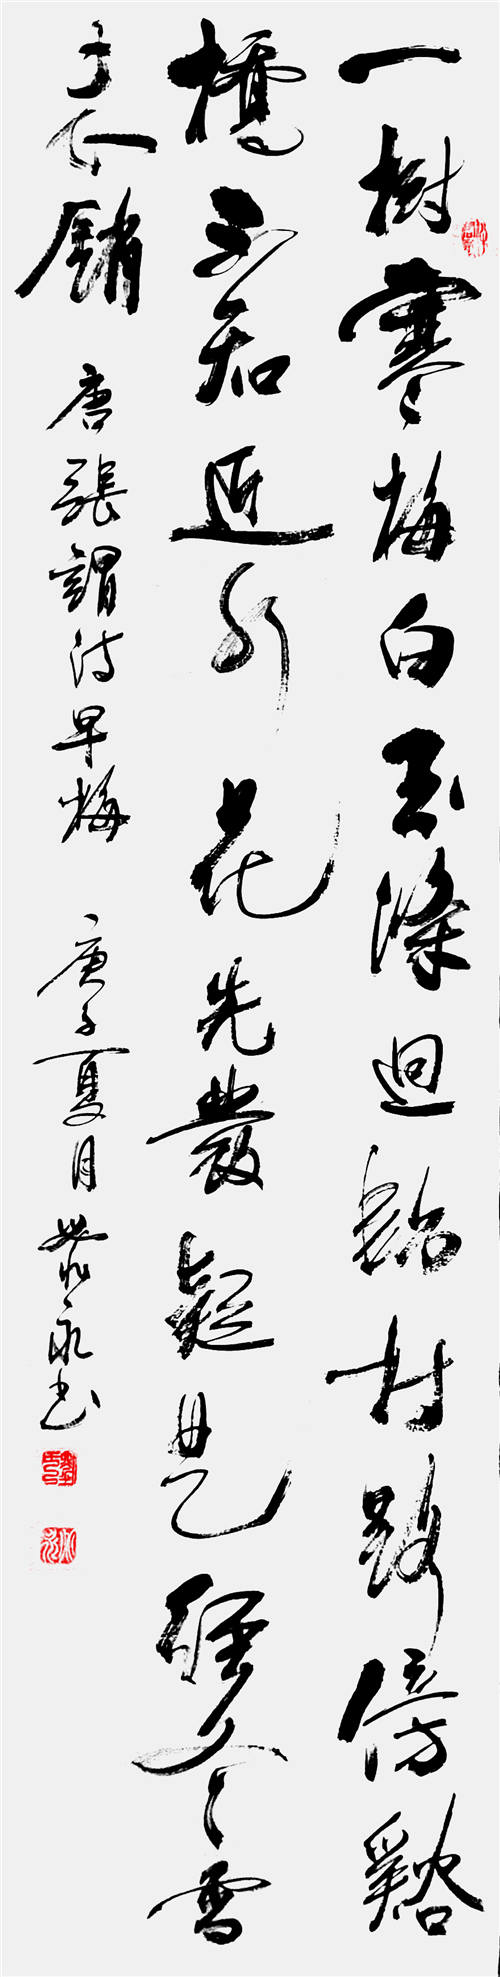 一樹寒梅白玉條迥臨村路傍谿
橋不知近水花先發疑是經冬雪
未銷 唐張謂詩早梅 庚子夏月 永书